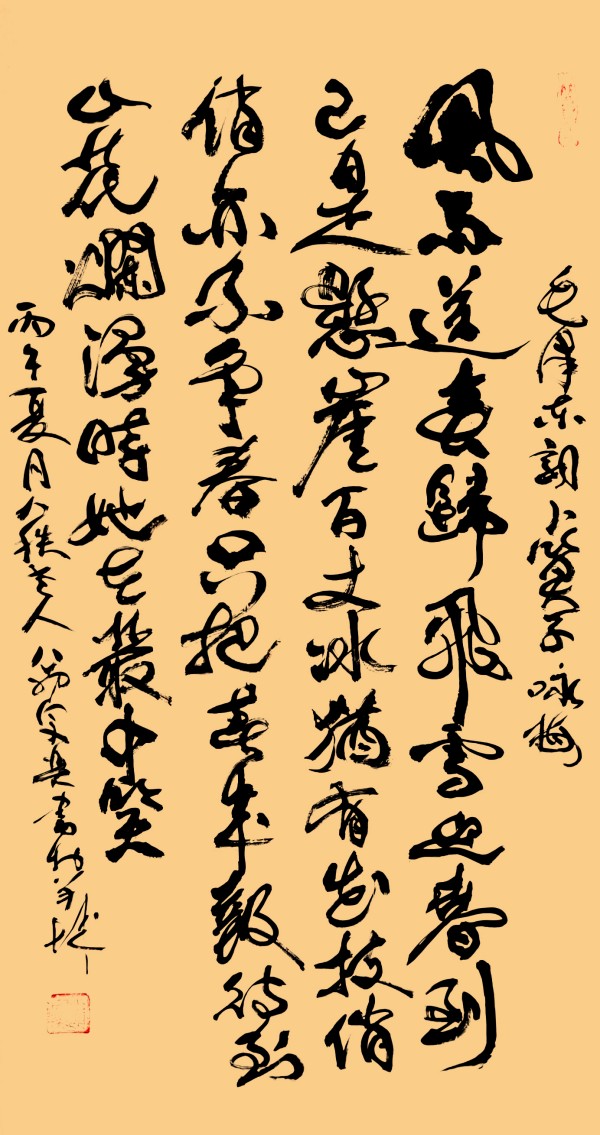 毛泽东詞卜算子咏梅
風雨送春歸飛雪迎春到
已是懸崖百丈冰猶有花枝俏
俏亦不争春只把春来報待到
山花爛漫時她在叢中笑
丙午夏月八秩老人書於羊城